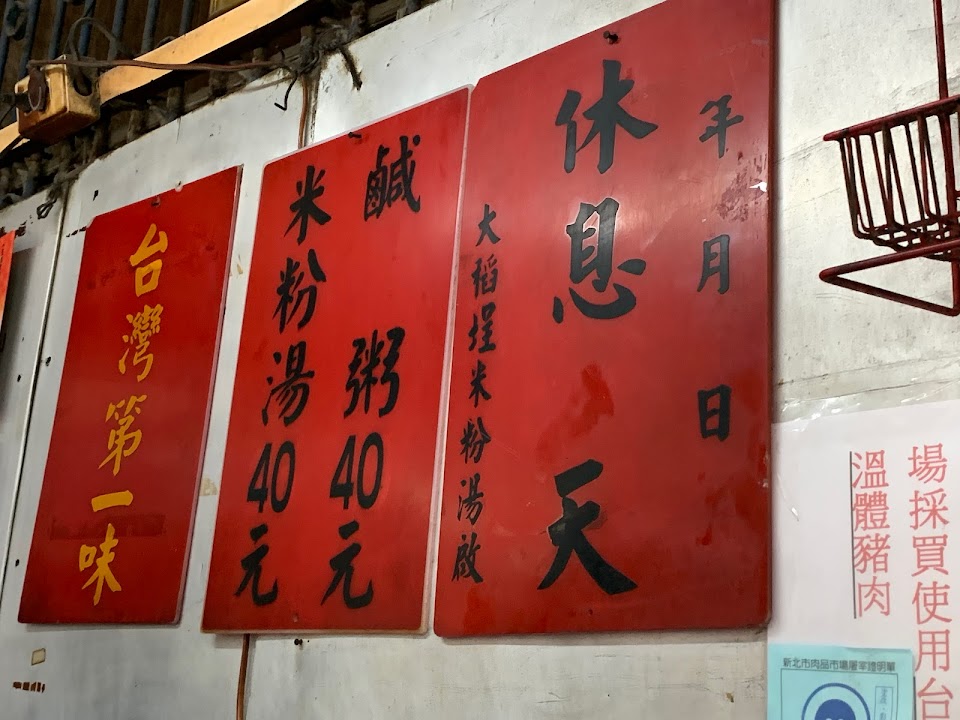 年月日
休息 天
大稻埕米粉湯啟
鹹 粥40元
米粉湯40元
台灣第一味
場採買使用台
溫體豬肉
新北市肉品市場屠宰證明單